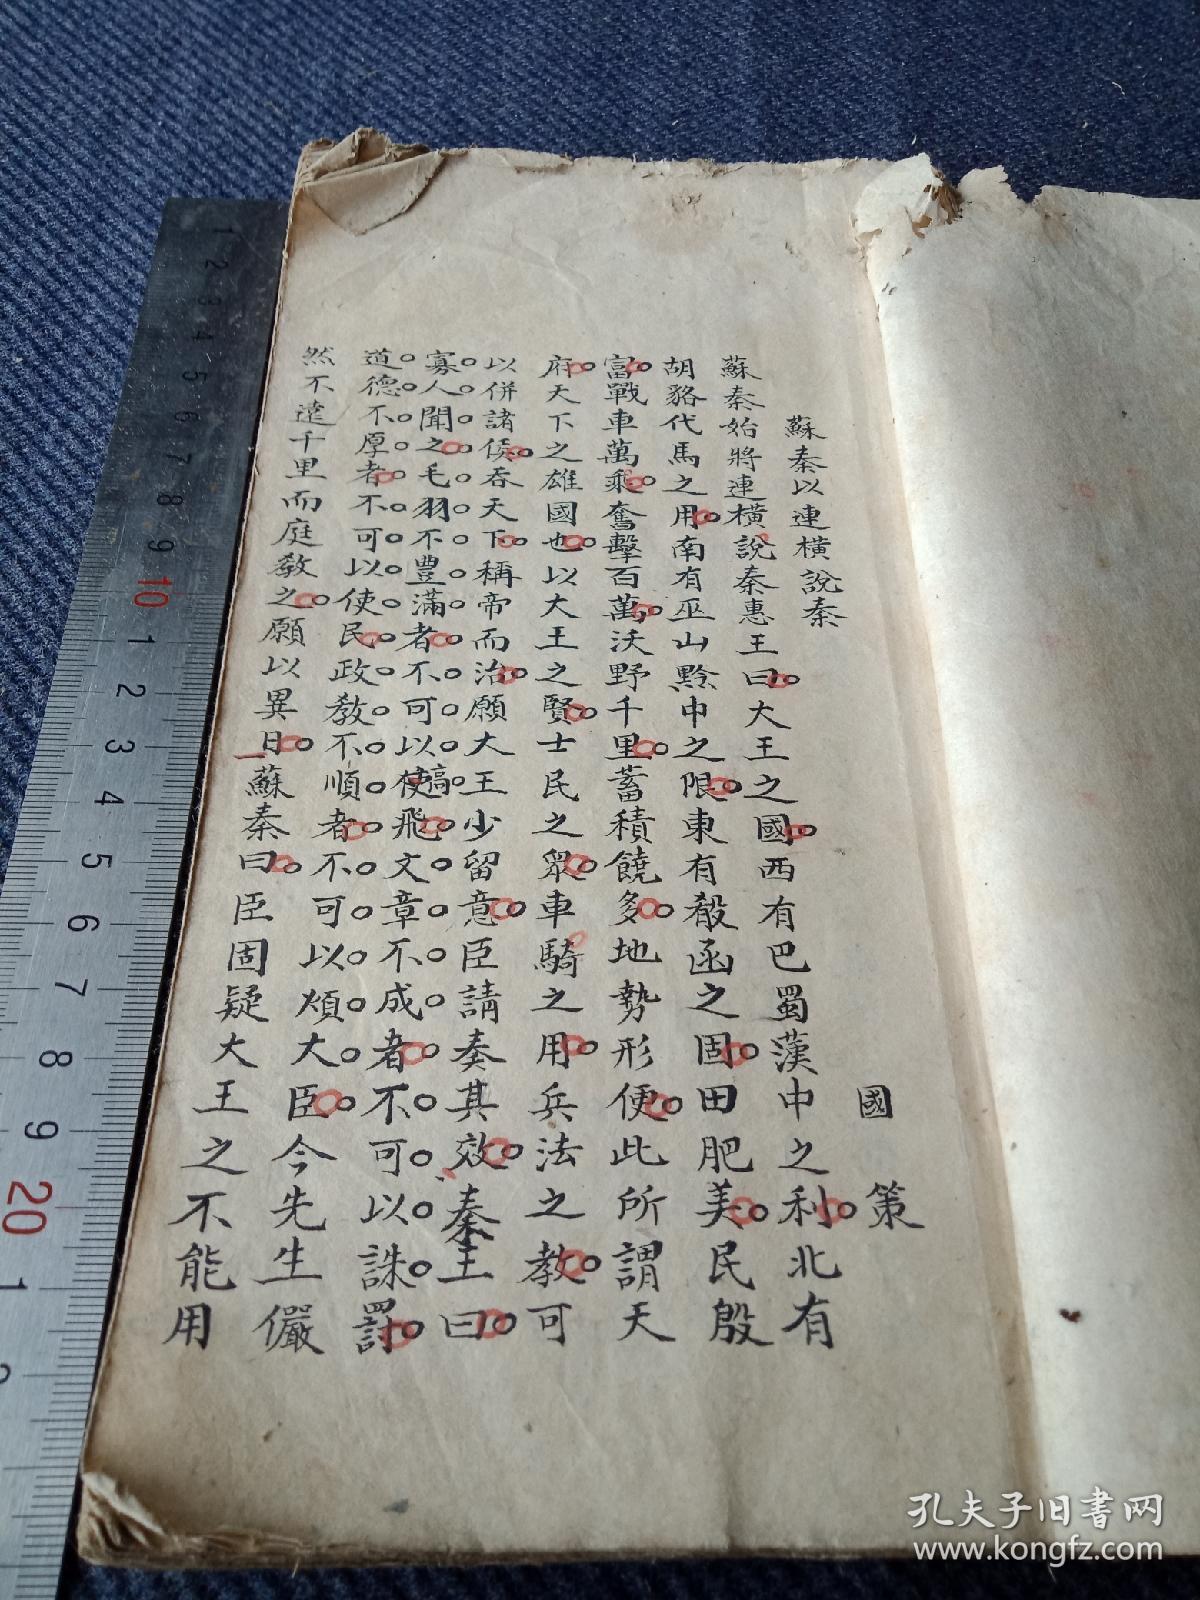 國策
蘇秦以連橫說秦
蘇秦始將連橫說秦惠王曰大王之國西有巴蜀漢中之利北有
胡貉代馬之用南有巫山黔中之限東有殽函之固田肥美民殷
富戰車萬乘奮擊百萬沃野千里蓄積饒多地勢形便此所謂天
府天下之雄國也以大王之賢士民之眾車騎之用兵法之教可
以併諸侯吞天下稱帝而治願大王少留意臣請奏其效秦王曰
寡人聞之毛羽不豐滿者不可以使高飛文章不成者不可以誅罰
道德不厚者不可以使民政教不順者不可以煩大臣今先生儼
然不遠千里而庭教之願以異日蘇秦曰臣固疑大王之不能用
1 2 3 4 5 6 7 8 9 10 1 2 3 4 5 6 7 8 9 20 1 2
孔夫子旧书网
www.kongfz.com